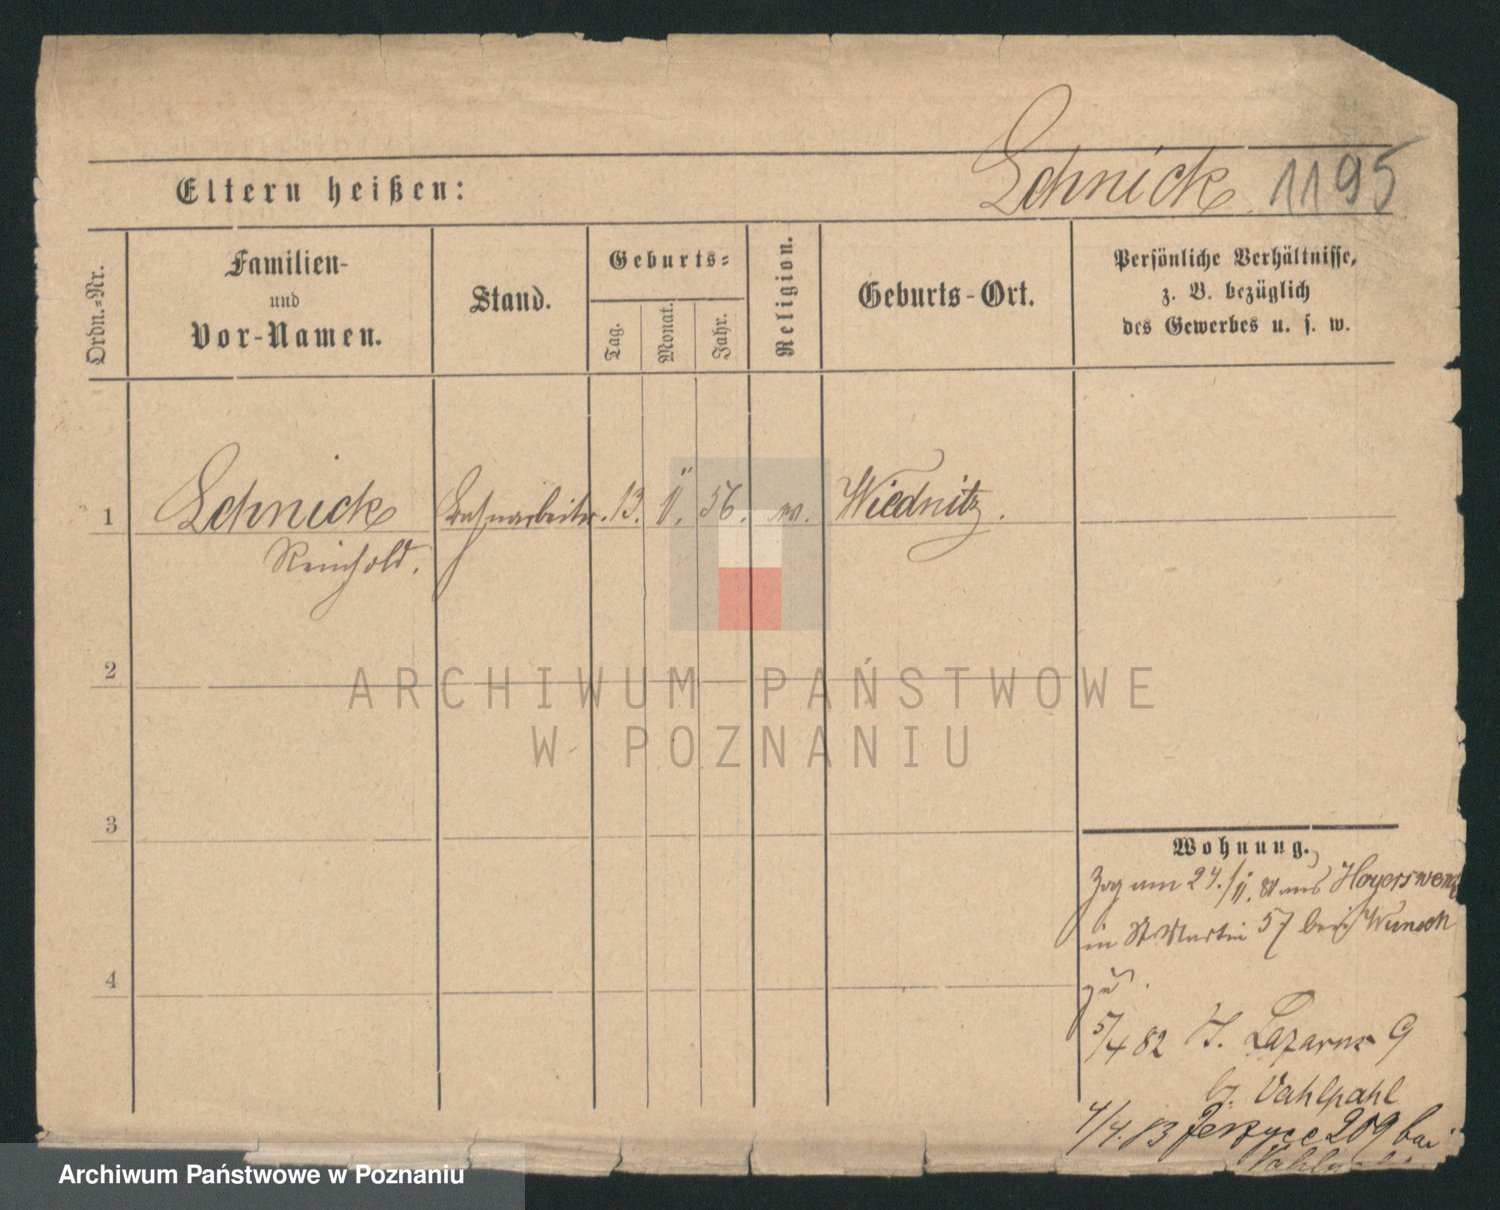 Schnick 1195
Eltern heißen:
Ordn.-Nr.
Familien-
und
Vor-Namen.
Stand.
Geburts-
Tag.
Monat.
Jahr.
Religion.
Geburts-Ort.
Persönliche Verhältnisse,
z. B. bezüglich
des Gewerbes u. s. w.
1 Schnick Bahnarbeiter. 13. 11. 56. ev. Wiednitz.
Reinhold.
2
3
4
Wohnung.
Zog am 24./11. 81 aus Hoyerswerda
in St Martin 57 bei Wunsch
zu.
5/4 82 St. Lazarus 9
b. Vahlpahl
4/4. 83 Jerzyce 209 bei
ARCHIWUM PAŃSTWOWE
W POZNANIU
Archiwum Państwowe w Poznaniu